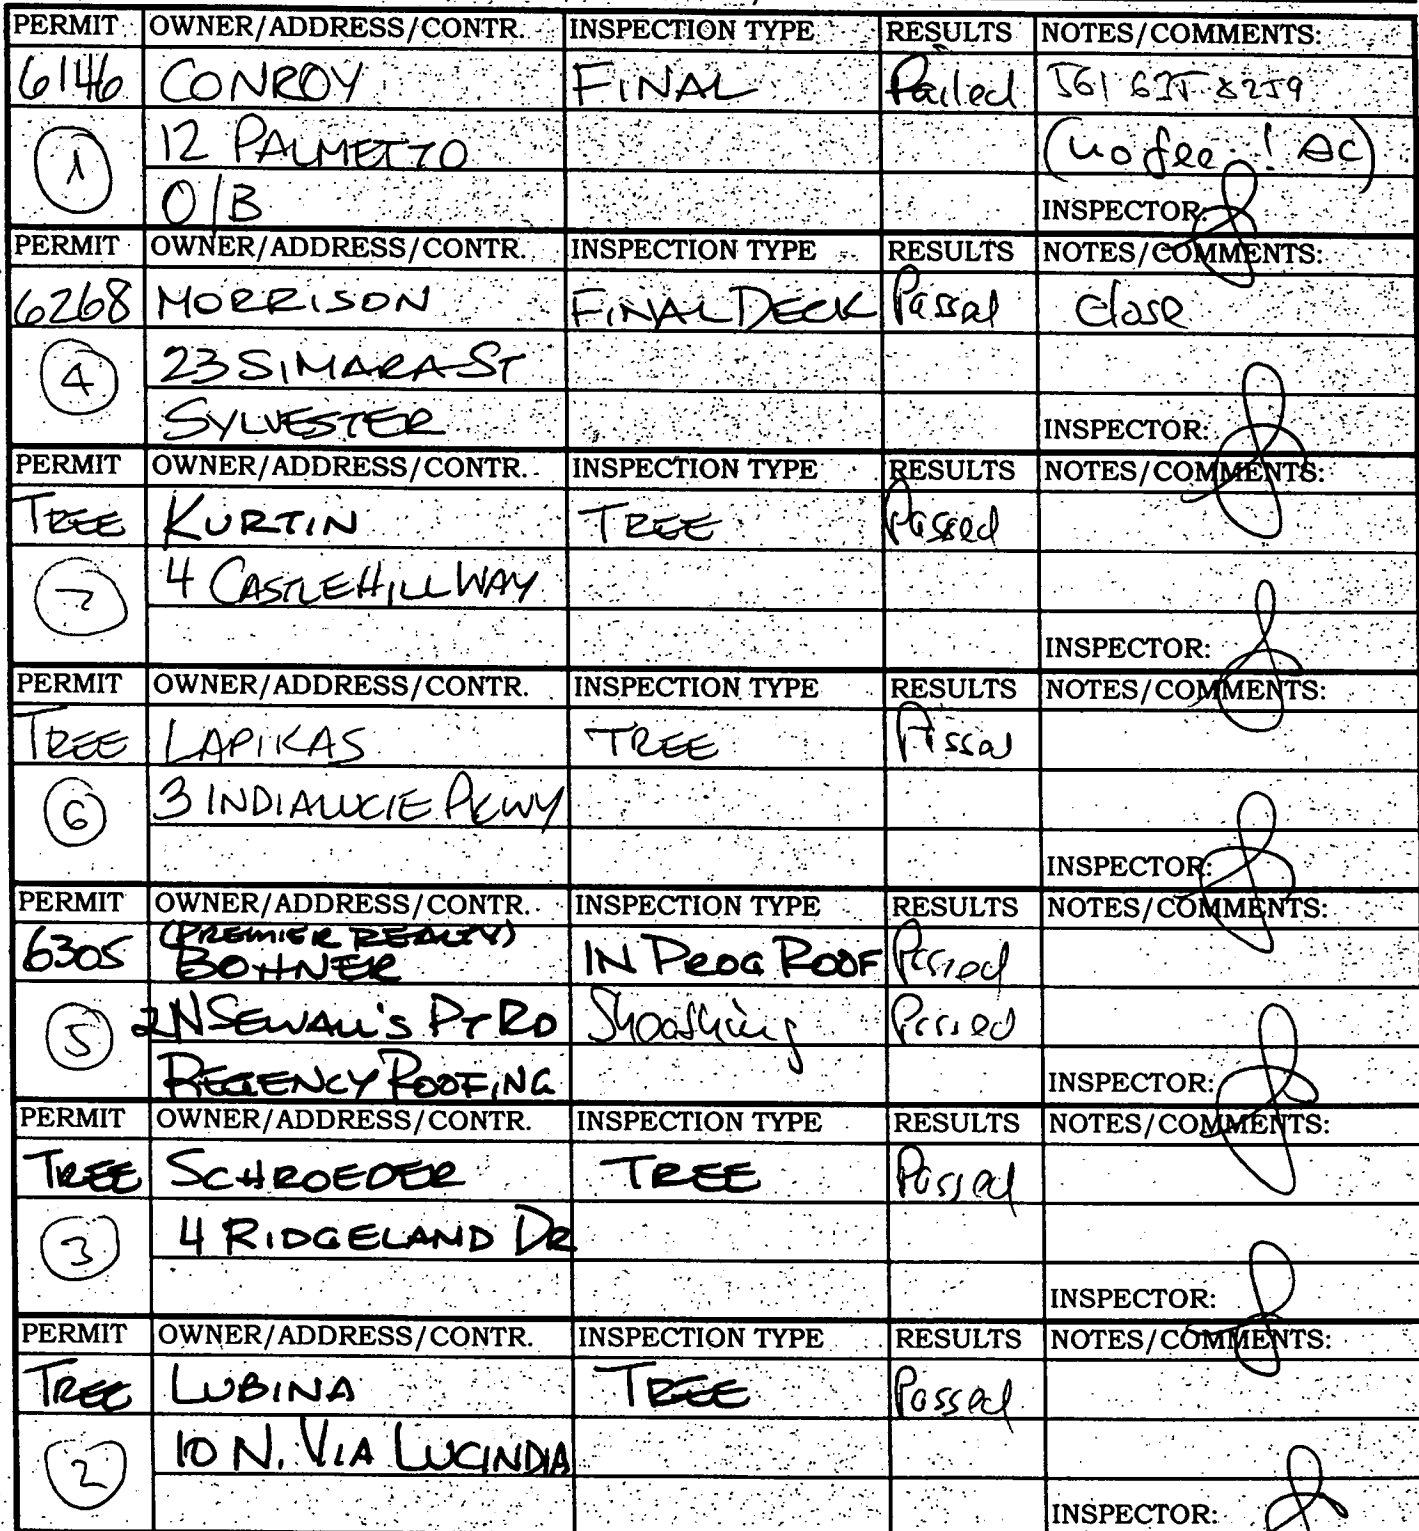 PERMIT OWNER/ADDRESS/CONTR. INSPECTION TYPE RESULTS NOTES/COMMENTS:
6146 CONROY FINAL Failed 561
1 12 PALMETTO (no fee ! AC)
O/B INSPECTOR:
PERMIT OWNER/ADDRESS/CONTR. INSPECTION TYPE RESULTS NOTES/COMMENTS:
6268 MORRISON FINAL DECK Passed close
4 23 SIMARA ST
SYLVESTER INSPECTOR:
PERMIT OWNER/ADDRESS/CONTR. INSPECTION TYPE RESULTS NOTES/COMMENTS:
TREE KURTIN TREE Passed
7 4 CASTLE HILL WAY
INSPECTOR:
PERMIT OWNER/ADDRESS/CONTR. INSPECTION TYPE RESULTS NOTES/COMMENTS:
TREE LAPIKAS TREE Passed
6 3 INDIALUCIE PKWY
INSPECTOR:
PERMIT OWNER/ADDRESS/CONTR. INSPECTION TYPE RESULTS NOTES/COMMENTS:
(PREMIER REALTY)
6305 BOHNER IN PROG ROOF Passed
5 2 N SEWALL'S PT RD Sheathing Passed
REGENCY ROOFING INSPECTOR:
PERMIT OWNER/ADDRESS/CONTR. INSPECTION TYPE RESULTS NOTES/COMMENTS:
TREE SCHROEDER TREE Passed
3 4 RIDGELAND DR
INSPECTOR:
PERMIT OWNER/ADDRESS/CONTR. INSPECTION TYPE RESULTS NOTES/COMMENTS:
TREE LUBINA TREE Passed
2 10 N. VIA LUCINDIA
INSPECTOR: